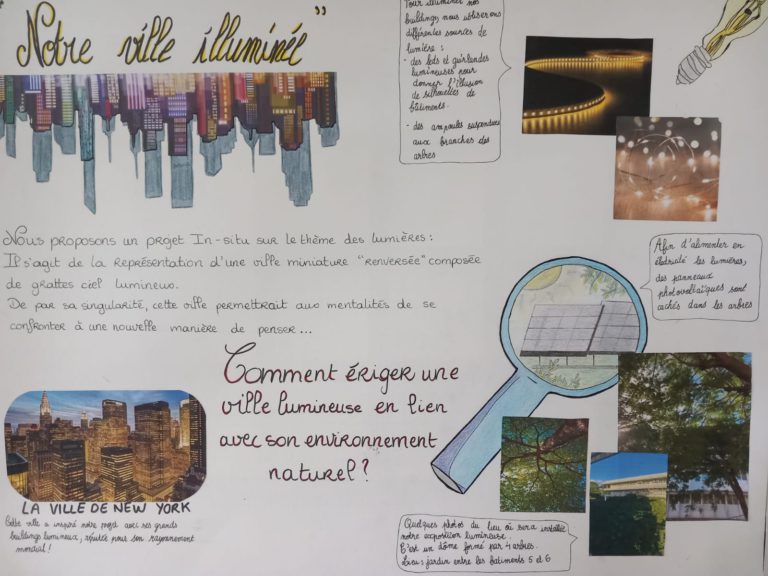 "Notre ville illuminée"
Pour illuminer nos
buildings, nous utiliserons
différentes sources de
lumière :
- des leds et guirlandes
lumineuses pour
donner l'illusion
de silhouettes de
bâtiments.
- des ampoules suspendues
aux branches des
arbres
Nous proposons un projet In-situ sur le thème des lumières :
Il s'agit de la représentation d'une ville miniature "renversée" composée
de grattes ciel lumineux.
De par sa singularité, cette ville permettrait aux mentalités de se
confronter à une nouvelle manière de penser...
Afin d'alimenter en
électricité les lumières,
des panneaux
photovoltaïques sont
cachés dans les arbres
Comment ériger une
ville lumineuse en lien
avec son environnement
naturel ?
LA VILLE DE NEW YORK
Cette ville a inspiré notre projet avec ses grands
buildings lumineux, réputée pour son rayonnement
mondial !
Quelques photos du lieu où sera installée
notre exposition lumineuse.
C'est un dôme formé par 4 arbres.
Lieu : jardin entre les bâtiments 5 et 6